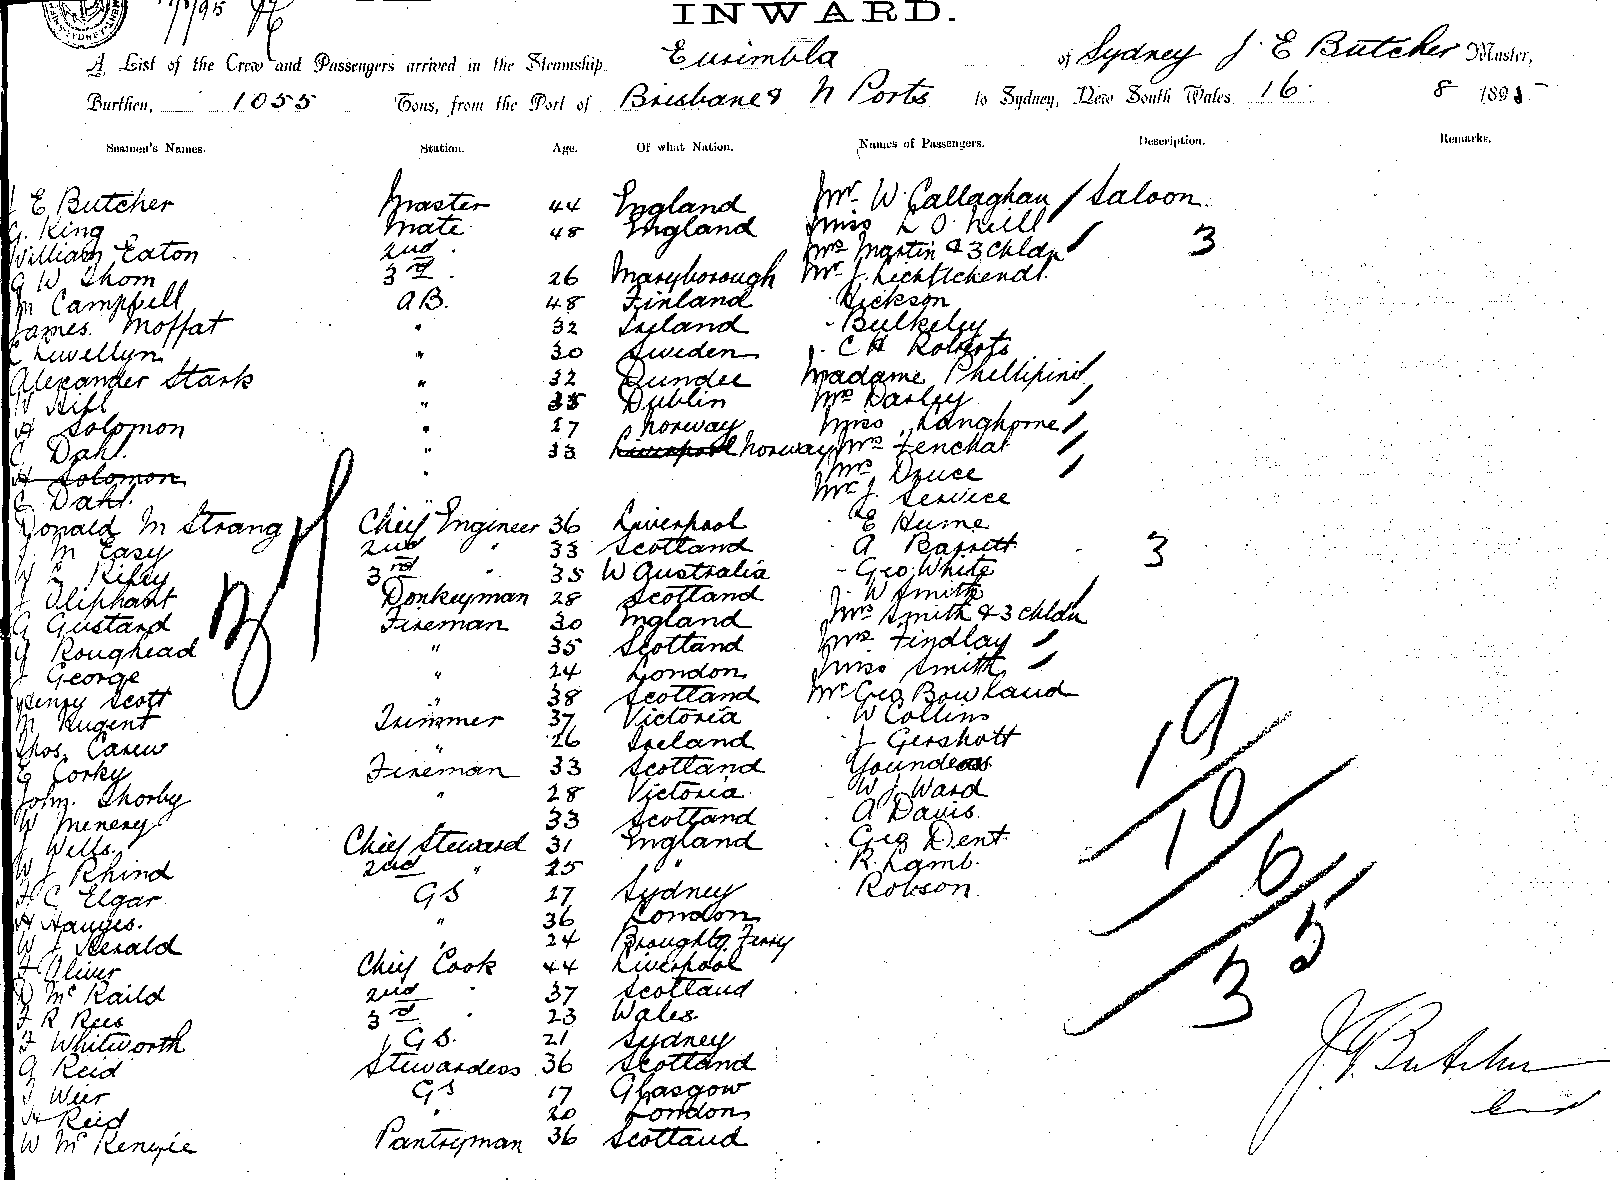 INWARD.
A List of the Crew and Passengers arrived in the Steamship Eurimbla of Sydney J E Butcher Master,
Burthen, 1055 Tons, from the Port of Brisbane & N Ports to Sydney, New South Wales 16 8 1895
Seamen's Names. Station. Age. Of what Nation. Names of Passengers. Description. Remarks.
J E Butcher Master 44 England Mr W. Callaghan / Saloon
G King Mate 48 England Miss L O'Neill
William Eaton 2nd Mrs Martin & 3 Chldn / 3
G W Thom 3rd 26 Maryborough Mr J.
M Campbell AB. 48 Finland Hickson
James Moffat " 32 Ireland Bulkeley
C Llewellyn " 30 Sweden C H Roberts
Alexander Stark " 32 Dundee Madame Phillipini /
N Hill " 35 Dublin Mrs Darley /
A Solomon " 27 Norway Miss Langhorne /
C Dahl " 33 Liverpool Norway Mrs Fenchat /
A Solomon " Mrs Druce /
C Dahl. Mr J. Service
Donald M Strang Chief Engineer 36 Liverpool E Hume
J. M Easy 2nd " 33 Scotland A Barrett 3
W E Riley 3rd " 35 W Australia Geo. White
J Oliphant Donkeyman 28 Scotland W Smith
G Gustard Fireman 30 England Mrs Smith & 3 Chldn /
J Roughead " 35 Scotland Mrs Findlay /
J George " 24 London Miss Smith /
Henry Scott " 38 Scotland Mr Geo Bowland
M Nugent Trimmer 37 Victoria W Collins
Thos. Carew " 26 Ireland J Gershott
G Corky Fireman 33 Scotland
John. Thorby " 28 Victoria W J Ward
W Menery 33 Scotland A Davis
J Wells. Chief Steward 31 England Geo Dent
W J Rhind 2nd " 25 " R. Lamb.
H C Elgar GS 27 Sydney Robson
A " 36 London
W J Herald 24 Broughty Ferry
F Oliver Chief Cook 44 Liverpool
D McRaild 2nd " 37 Scotland
F R Rees 3rd " 23 Wales
F Whitworth G S. 21 Sydney
A Reid Stewardess 36 Scotland
J Weir GS 17 Glasgow
A Reid " 20 London
W McKenzie Pantryman 36 Scotland
19
10
6
35
J. E. Butcher